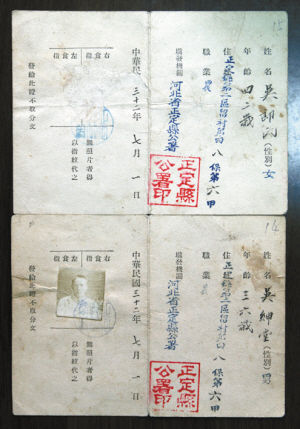 姓名 吳 (性別) 女
年齡 四二歲
住 正定縣第二區留村 第四八保第六甲
職業 農
填發機關 河北省正定縣公署
正定縣公署印
中華民 三十二年 七月 一日
右食指
左食指
無照片者得
以指紋代之
發給此證不取分文
14
姓名 吳紳堂 (性別) 男
年齡 三六歲
住 正定縣第二區留村 第四八保第六甲
職業
填發機關 河北省正定縣公署
正定縣公署印
中華民國三十二年 七月 一日
右食指
左食指
無照片者得
以指紋代之
發給此證不取分文